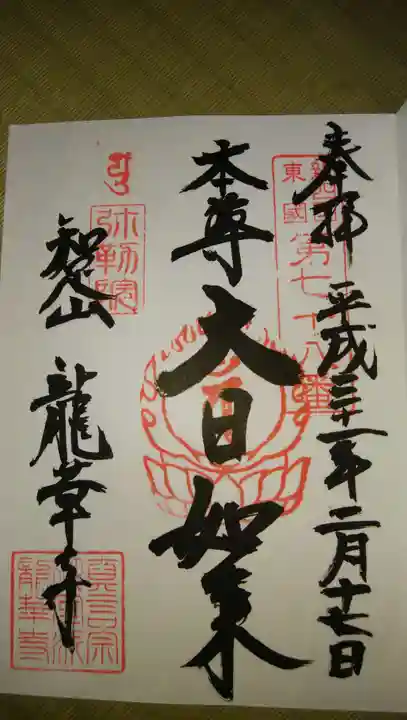 奉拝 平成三十一年二月十七日
東國
第七十八番
本尊 大日如来
弥勒院
智山 龍華寺
真言宗
龍華寺